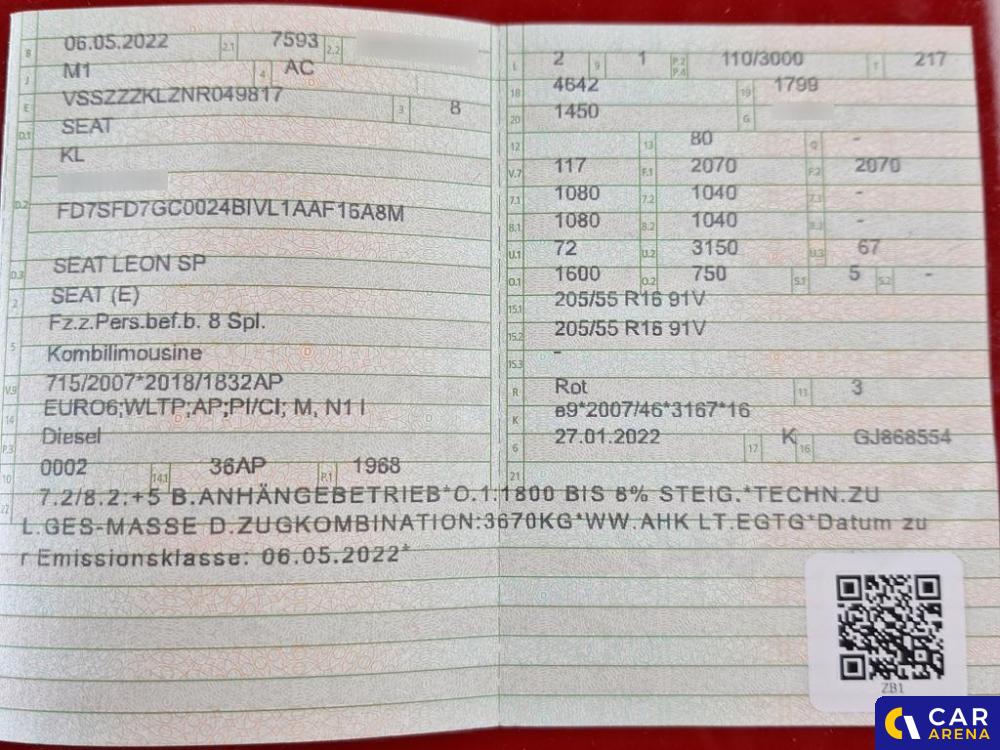 B 06.05.2022 2.1 7593 2.2
J M1 4 AC
E VSSZZZKLZNR049817 3 8
D.1 SEAT
KL
D.2
FD7SFD7GC0024BIVL1AAF16A8M
D.3 SEAT LEON SP
2 SEAT (E)
5 Fz.z.Pers.bef.b. 8 Spl.
Kombilimousine
V.9 715/2007*2018/1832AP
14 EURO6;WLTP;AP;PI/CI; M, N1 I
P.3 Diesel
10 0002 14.1 36AP P.1 1968
L 2 9 1 P.2 P.4 110/3000 T 217
18 4642 19 1799
20 1450 G
12 13 80 Q -
V.7 117 F.1 2070 F.2 2070
7.1 1080 7.2 1040 7.3 -
8.1 1080 8.2 1040 8.3 -
U.1 72 U.2 3150 U.3 67
O.1 1600 O.2 750 S.1 5 S.2 -
15.1 205/55 R16 91V
15.2 205/55 R16 91V
15.3 -
R Rot 11 3
K e9*2007/46*3167*16
6 27.01.2022 17 K 16 GJ868554
21
22 7.2/8.2:+5 B.ANHÄNGEBETRIEB*O.1:1800 BIS 8% STEIG.*TECHN.ZU
L.GES-MASSE D.ZUGKOMBINATION:3670KG*WW.AHK LT.EGTG*Datum zu
r Emissionsklasse: 06.05.2022*
ZB1
CAR
ARENA